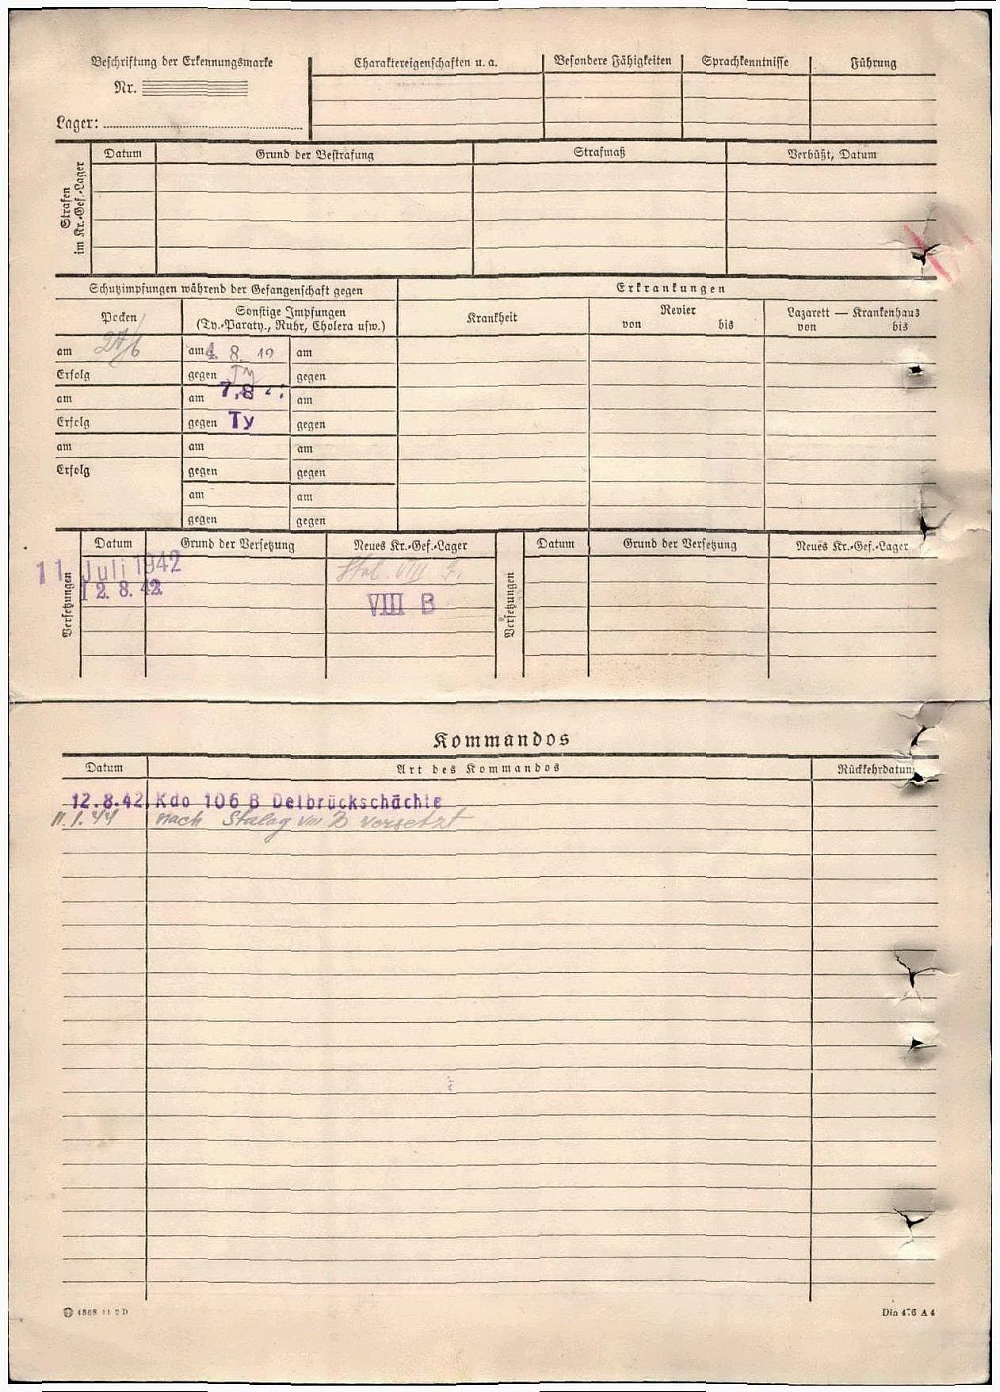 Beschriftung der Erkennungsmarke
Nr.
Lager:
Charaktereigenschaften u. a.
Besondere Fähigkeiten
Sprachkenntnisse
Führung
Strafen im Kr.-Gef.-Lager
Datum
Grund der Bestrafung
Strafmaß
Verbüßt, Datum
Schutzimpfungen während der Gefangenschaft gegen
Erkrankungen
Pocken
Sonstige Impfungen
(Ty.-Paraty., Ruhr, Cholera usw.)
Krankheit
Revier
von bis
Lazarett — Krankenhaus
von bis
am 27/6 am 4. 8. am
Erfolg gegen Ty gegen
am am 7.8 am
Erfolg gegen Ty gegen
am am am
Erfolg gegen gegen
am am
gegen gegen
Versetzungen
Datum Grund der Versetzung Neues Kr.-Gef.-Lager
11. Juli 1942 Stal. VIII
12. 8. 42. VIII B
Versetzungen
Datum Grund der Versetzung Neues Kr.-Gef.-Lager
Kommandos
Datum Art des Kommandos Rückkehrdatum
12.8.42. Kdo 106 B Delbrückschächte
11.1.44 nach Stalag VIII B versetzt
Din 476 A 4